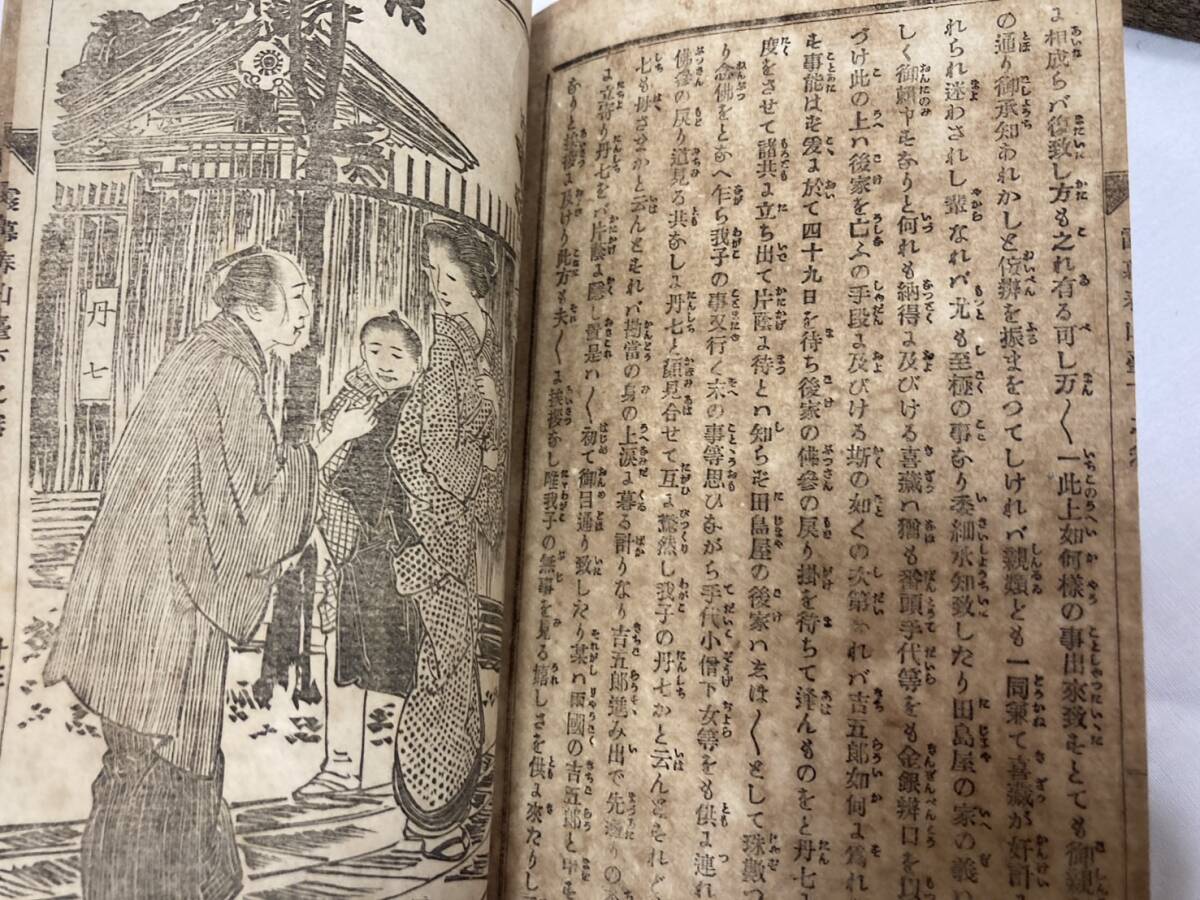 ま相成らバ復致し方も之れ有る可し万〱一此上如何様の事出來致すとても御親
の通り御承知あれかしと侫辨を振まをつてしけれバ親類とも一同兼て喜藏が好計
れられ迷わされし輩なれバ尤も至極の事なり委細承知致したり田島屋の家の義ハ
しく御頼申すなりと何れも納得ま及びける喜藏ハ猶も番頭手代等をも金銀辨口を以
づけ此の上ハ後家を亡ふの手段ま及びける斯の如くの次第なれバ吉五郎如何ま爲れ
を事能はを爰ま於て四十九日を待ち後家の佛參の戻り掛を待ちて逢んものをと丹七ま
度をさせて諸共ま立ち出て片蔭ま待とハ知らを田島屋の後家ハゑは〱として珠數つ
り念佛をとなへ乍ら我子の事又行く末の事等思ひながら手代小僧下女等をも供ま連れ
佛參の戻り道見る共なしま丹七と顔見合せて互ま驚然し我子の丹七かと云んとそれど
七も母さまかと云んとそれバ勘當の身の上涙ま暮る計りなり吉五郎進み出で先
ま立寄り丹七をバ片蔭ま隱し置是ハ〱初て御目通り致したり某ハ兩國の吉五郎と申を
なりと挨拶ま及けり此方も夫〱ま挨拶なし唯我子の無事を見る嬉しさを供ま來たりし
丹七